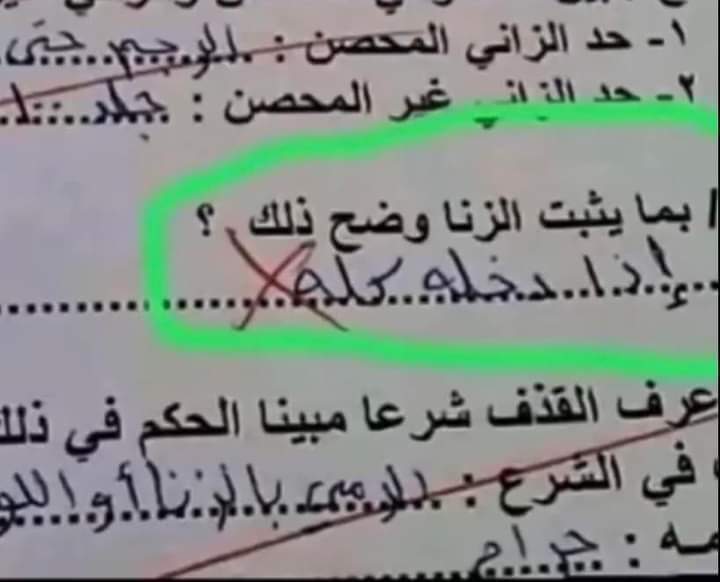 ١- حد الزاني المحصن : الرجم حتى
٢- حد الزاني غير المحصن : جلد
بما يثبت الزنا وضح ذلك ؟
إذا دخله كله
عرف القذف شرعا مبينا الحكم في ذلك
في الشرع : الرمي بالزنا أو اللو
مه : حرام